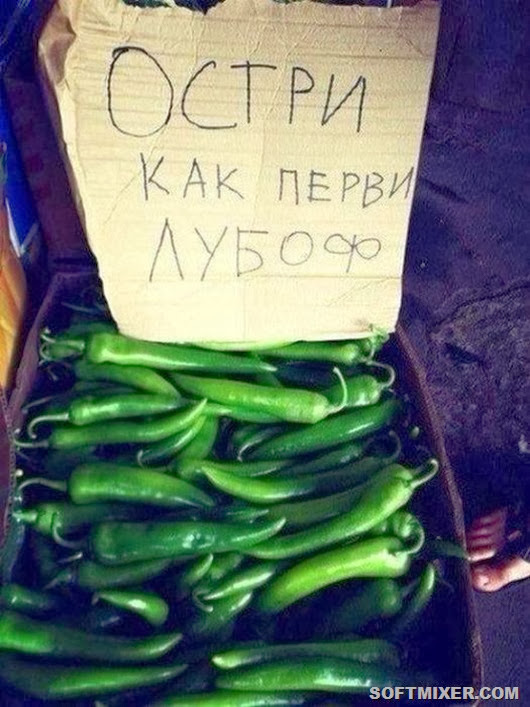 ОСТРИ
КАК ПЕРВИ
ЛУБОФ
SOFTMIXER.COM